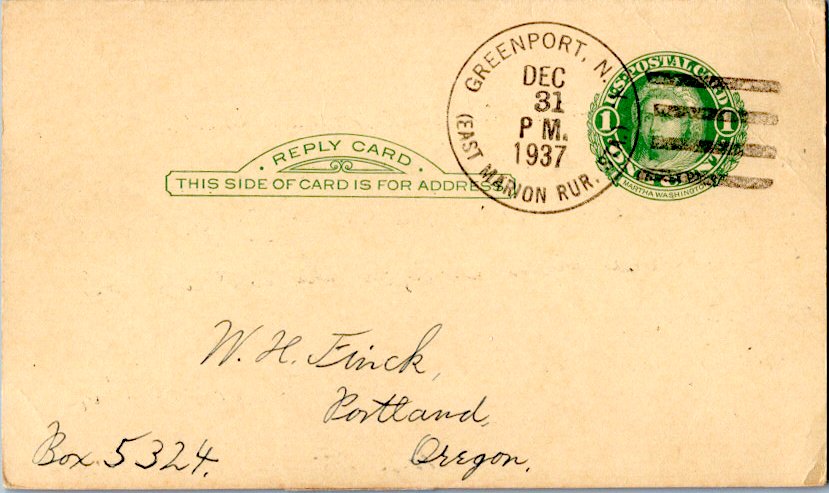 GREENPORT, N. Y.
DEC
31
P M.
1937
(EAST MARION RUR.
U·S·POSTAL CARD
1 1
MARTHA WASHINGTON
· REPLY CARD ·
THIS SIDE OF CARD IS FOR ADDRESS
W. H. Finck,
Portland,
Box 5324.
Oregon.